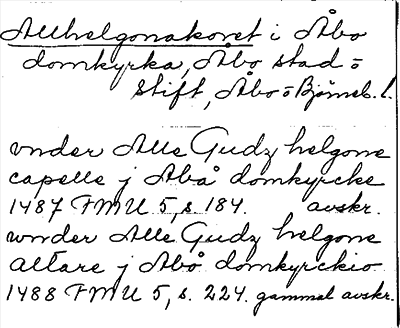 Allhelgonakoret i Åbo
domkyrka, Åbo stad o
stift, Åbo o Björneb. l.
vnder Alle Gudz helgone
capelle j Åbå domkyrcke
1487 FMU 5, s 184. avskr.
wnder Alle Gudz helgone
altare j Åbå domkyrckio
1488 FMU 5, s. 224. gammal avskr.